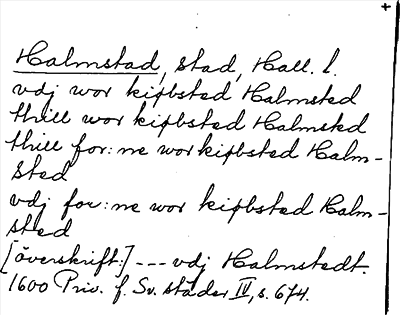 Halmstad, stad, Hall. l.
vdj wor kiøbsted Halmsted
thill wor kiøbsted Halmsted
thill for:ne wor kiøbsted Halm-
sted
vdj for:ne wor kiøbsted Halm-
sted
[överskrift:] --- vdj Halmstedt.
1600 Priv. f. Sv. städer IV, s. 674.